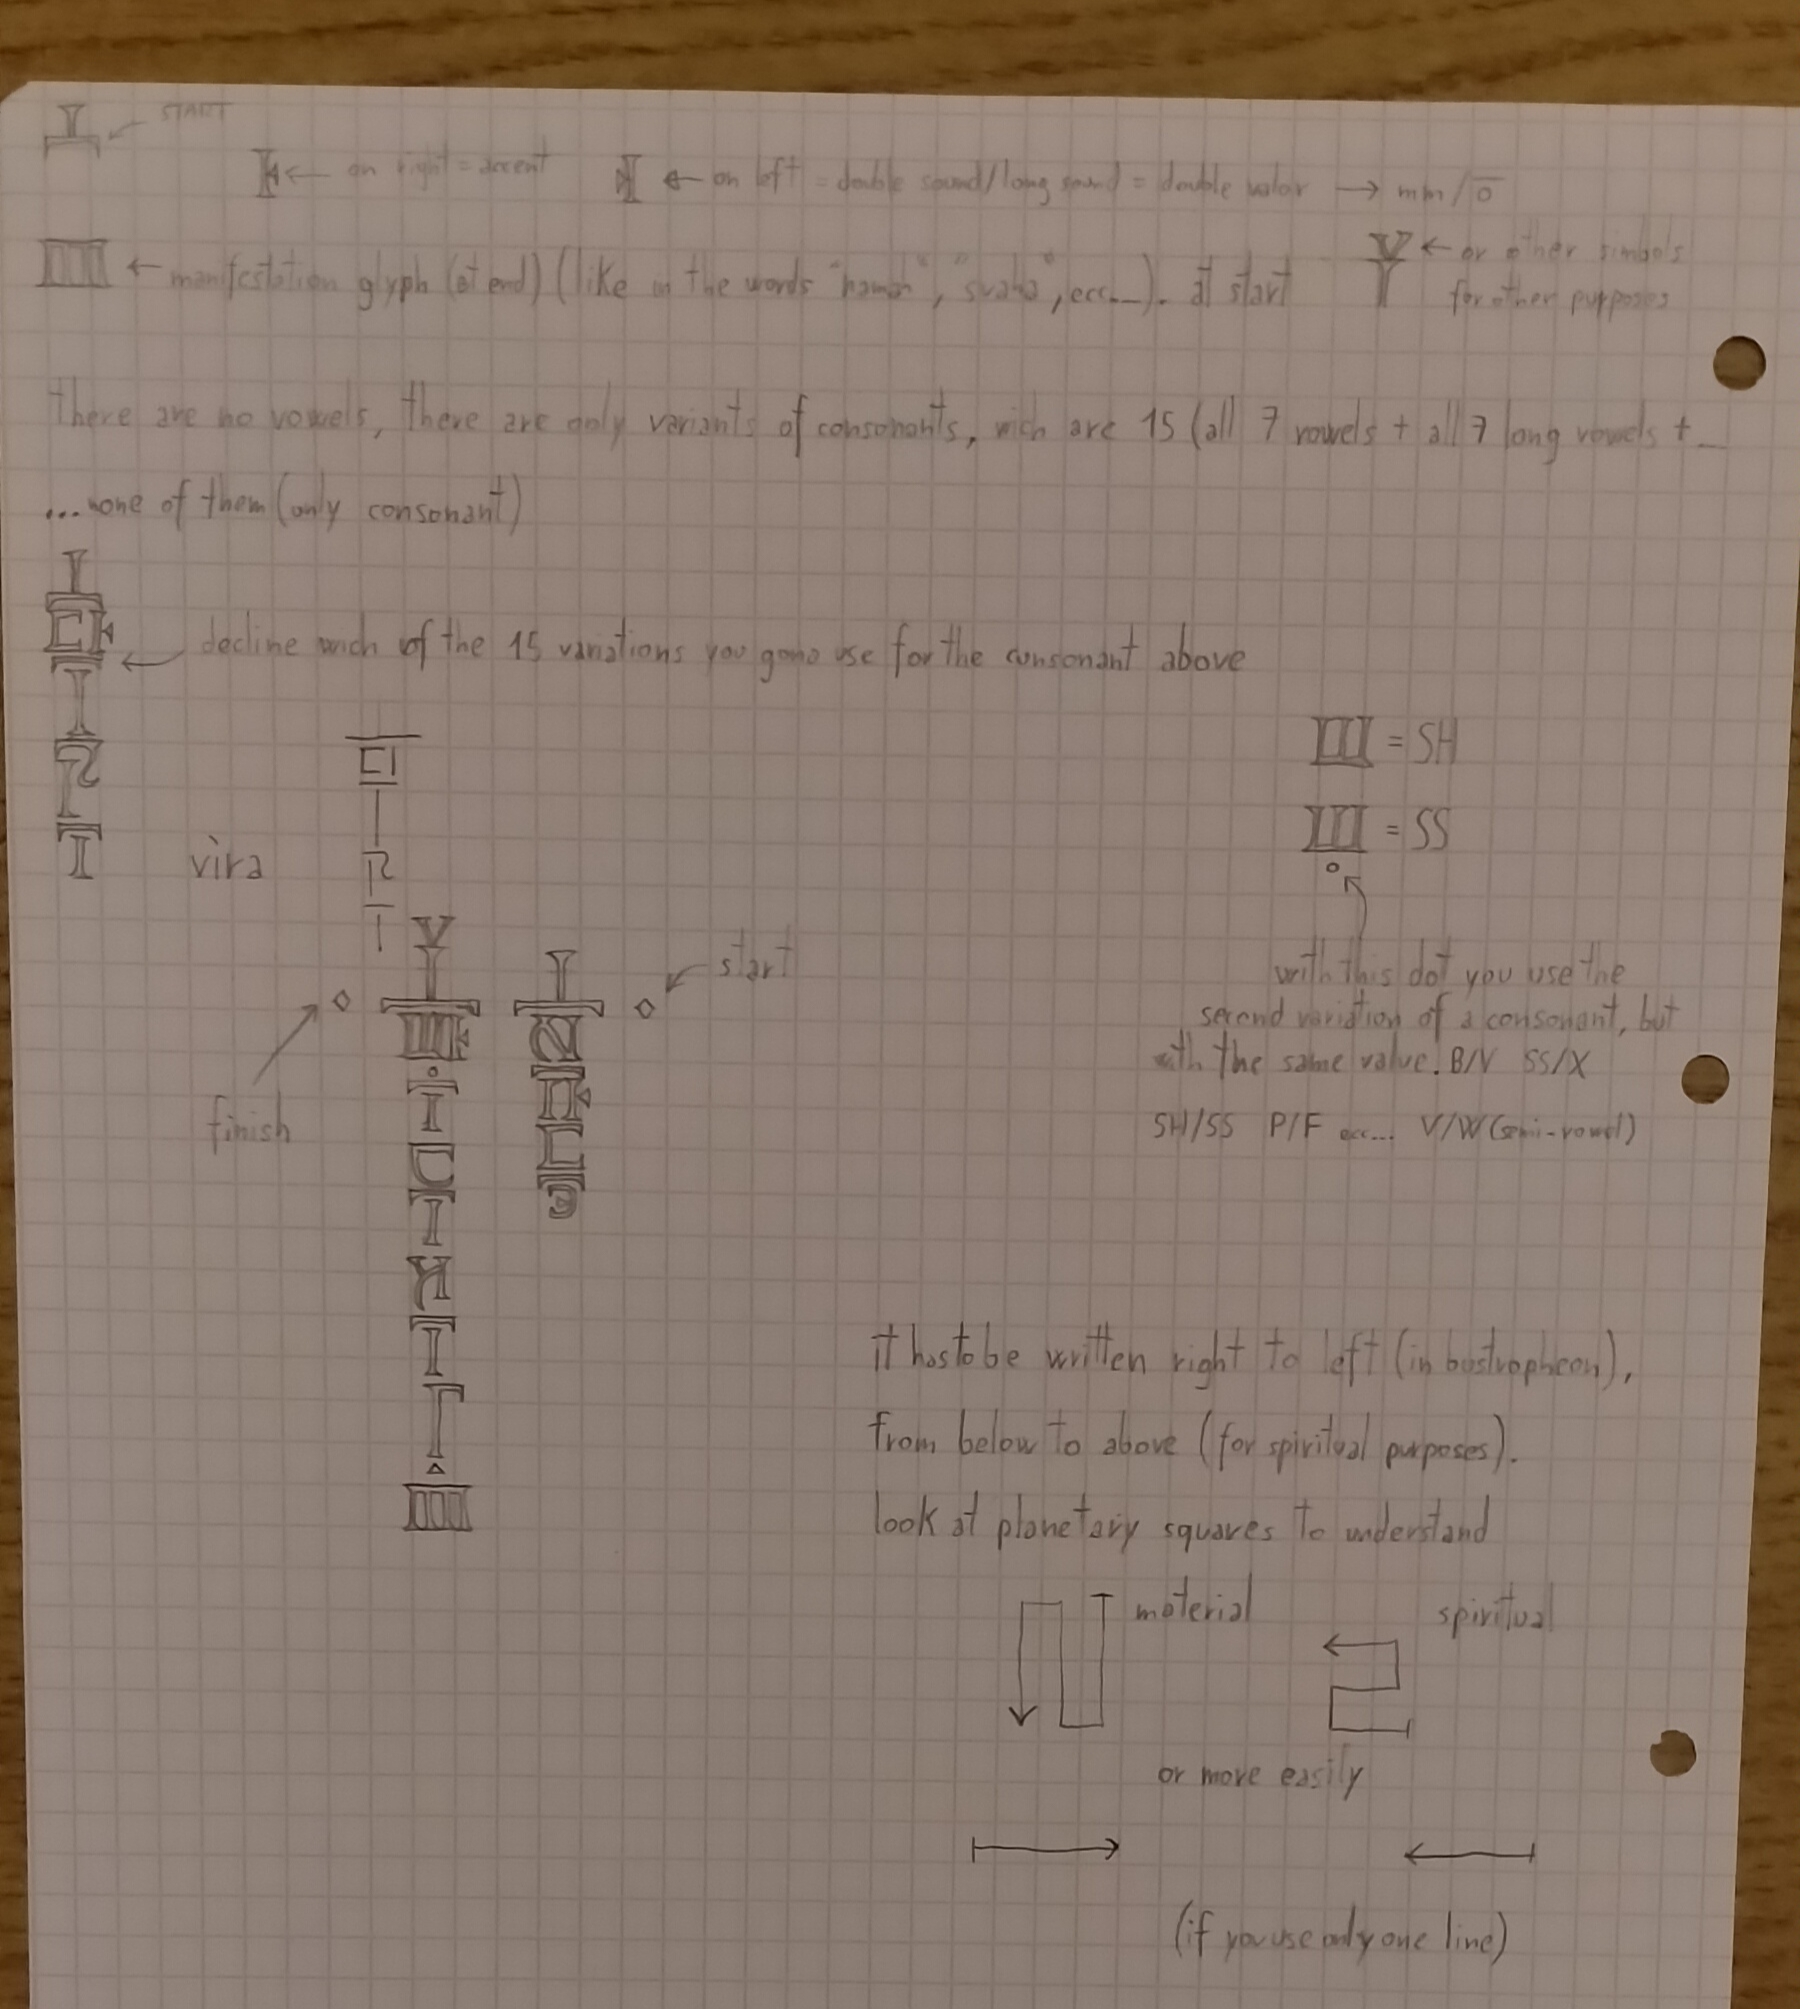 START
← on right = accent
← on left = double sound/long sound = double valor → mm/ō
← manifestation glyph (at end) (like in the words "namah", "svaha", ecc...). at start
← or other simbols
for other purposes
there are no vowels, there are only variants of consonants, wich are 15 (all 7 vowels + all 7 long vowels + ...
...none of them (only consonant)
decline wich of the 15 variations you gona use for the consonant above
= SH
= SS
vira
start
finish
with this dot you use the
second variation of a consonant, but
with the same value. B/V SS/X
SH/SS P/F ecc... V/W (semi-vowel)
it has to be written right to left (in bustropheon),
from below to above (for spiritual purposes).
look at planetary squares to understand
material
spiritual
or more easily
(if you use only one line)